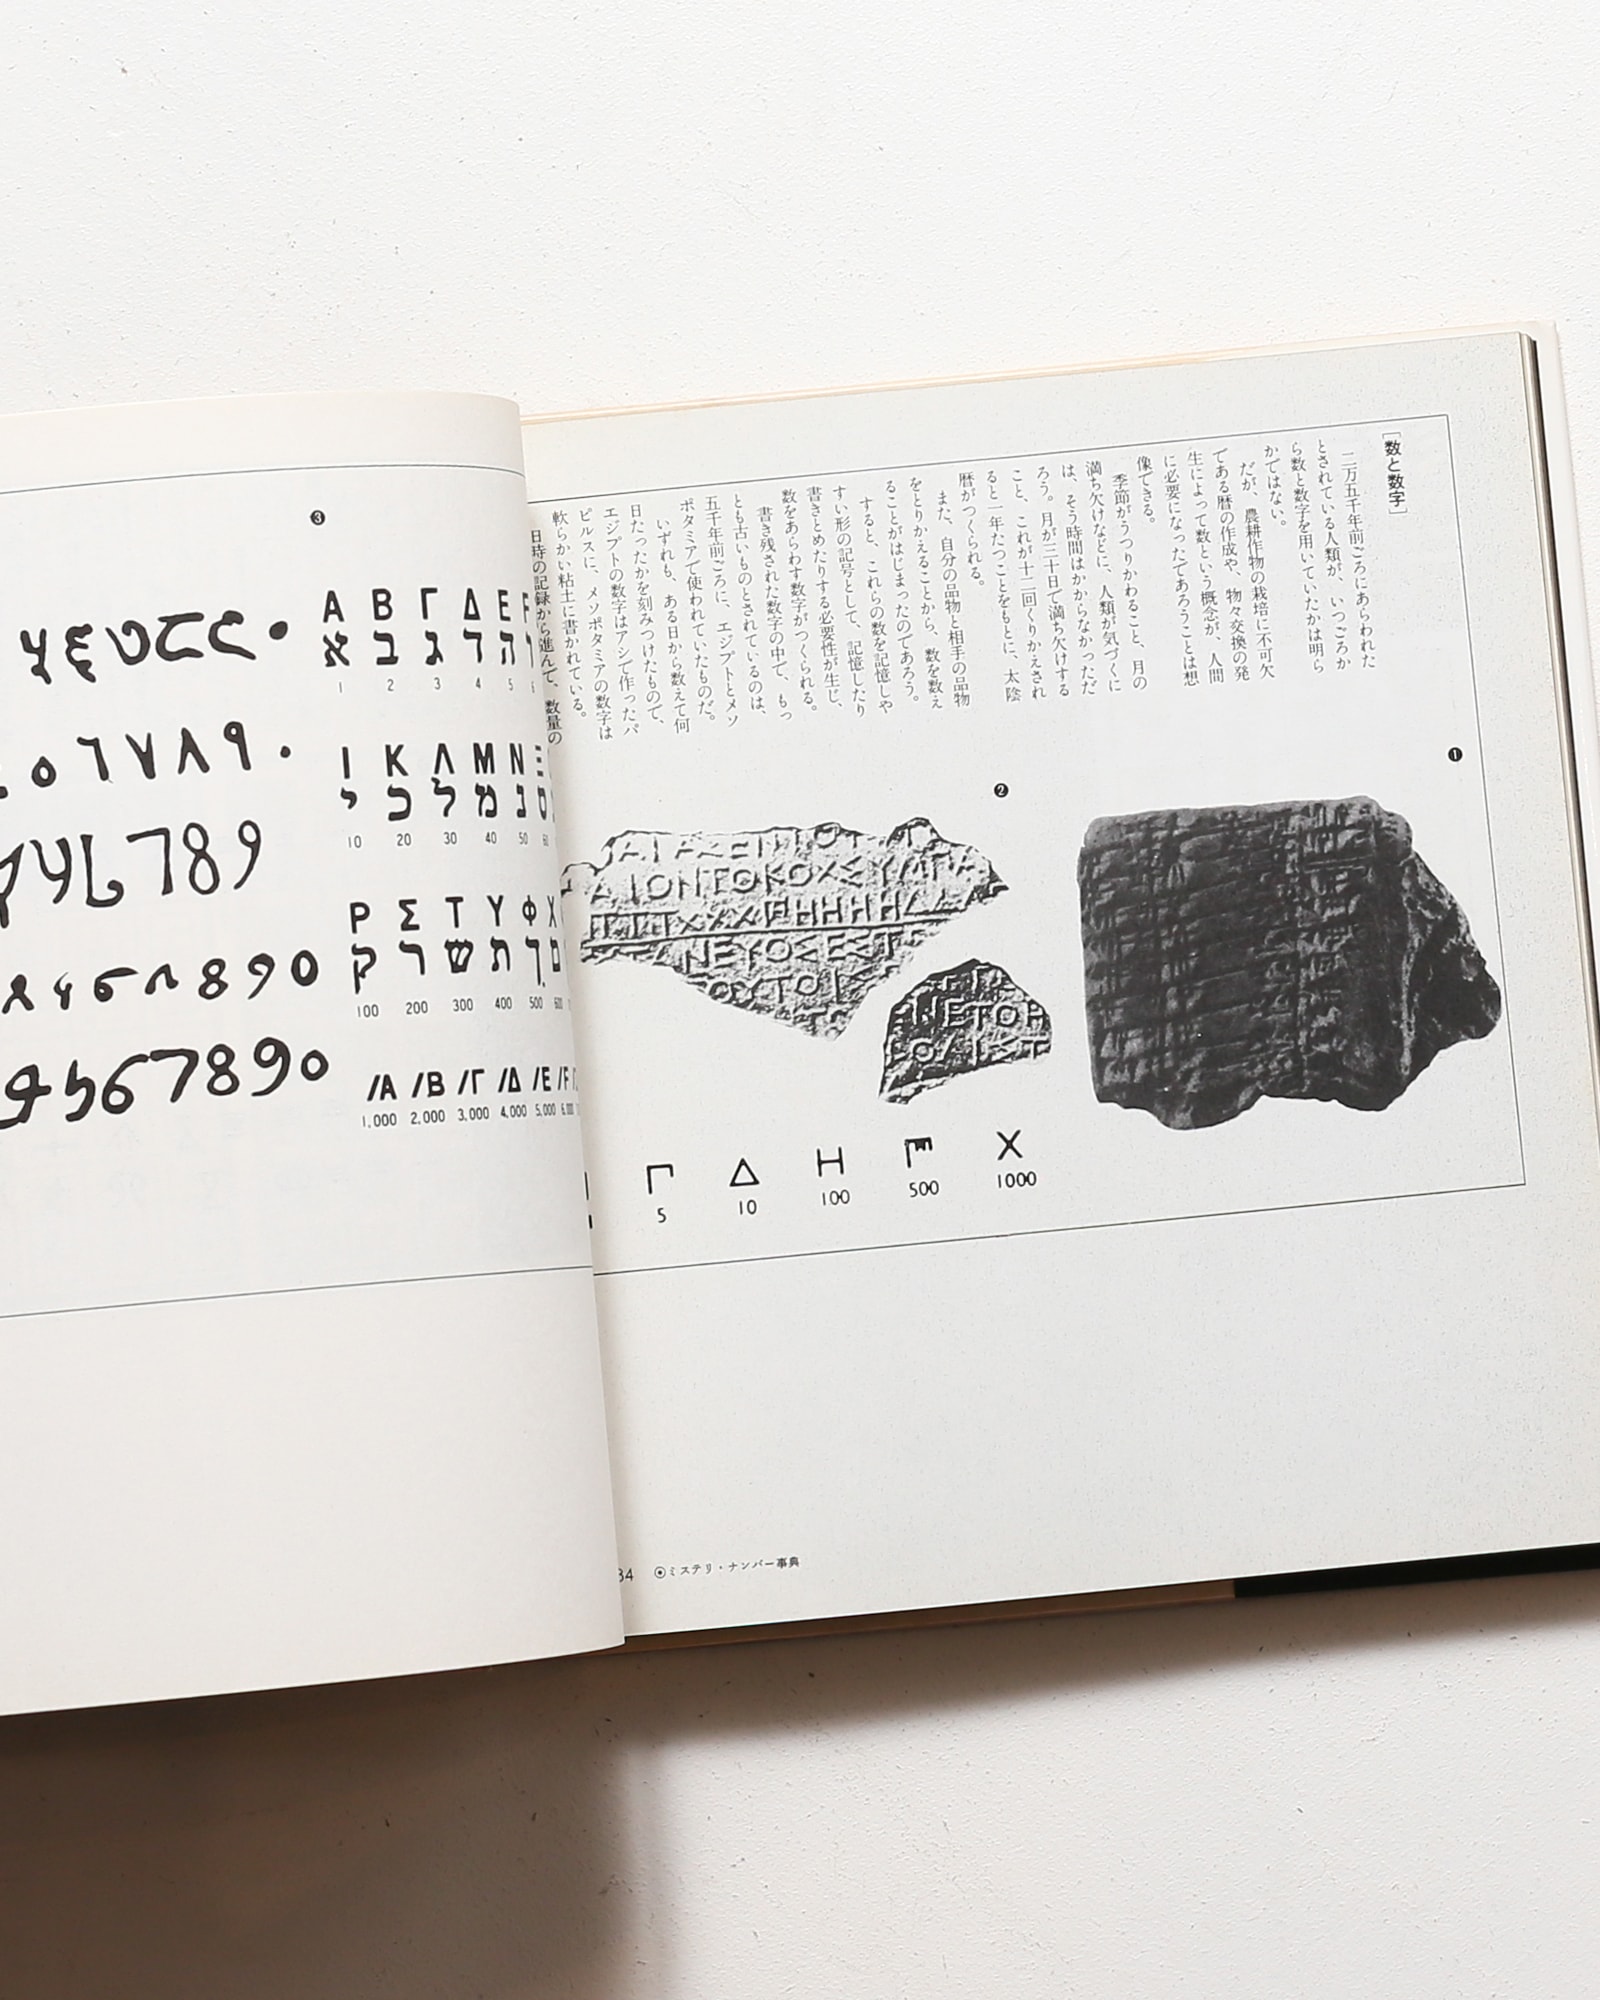 [数と数字]
二万五千年前ごろにあらわれた
とされている人類が、いつごろか
ら数と数字を用いていたかは明ら
かではない。
だが、農耕作物の栽培に不可欠
である暦の作成や、物々交換の発
生によって数という概念が、人間
に必要になったであろうことは想
像できる。
季節がうつりかわること、月の
満ち欠けなどに、人類が気づくに
は、そう時間はかからなかっただ
ろう。月が三十日で満ち欠けする
こと、これが十二回くりかえされ
ると一年たつことをもとに、太陰
暦がつくられる。
また、自分の品物と相手の品物
をとりかえることから、数を数え
ることがはじまったのであろう。
すると、これらの数を記憶しや
すい形の記号として、記憶したり
書きとめたりする必要性が生じ、
数をあらわす数字がつくられる。
書き残された数字の中で、もっ
とも古いものとされているのは、
五千年前ごろに、エジプトとメソ
ポタミアで使われていたものだ。
いずれも、ある日から数えて何
日たったかを刻みつけたもので、
エジプトの数字はアシで作ったパ
ピルスに、メソポタミアの数字は
軟らかい粘土に書かれている。
日時の記録から進んで、数量の
❶
❷
Γ Δ Η Χ
5 10 100 500 1000
84 ⦿ミステリ・ナンバー事典
❸
Α Β Γ Δ Ε F
א ב ג ד ה
1 2 3 4 5 6
Ι Κ Λ Μ Ν Ξ
י כ ל מ נ ס
10 20 30 40 50 60
Ρ Σ Τ Υ Φ Χ
ק ר ש ת ך ם
100 200 300 400 500 600
/Α /Β /Γ /Δ /Ε /F
1,000 2,000 3,000 4,000 5,000 6,000
7 8 9
8 9 0
6 7 8 9 0